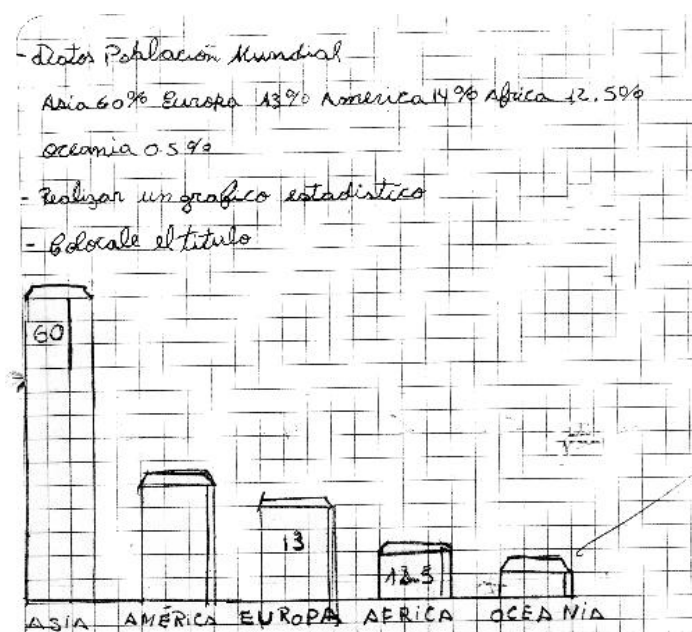 - Datos Población Mundial
Asia 60% Europa 13% America 14% Africa 12.5%
oceania 0.5%
- Realizar un grafico estadistico
- Colocale el titulo
60
13
12.5
ASIA AMÉRICA EUROPA AFRICA OCEANIA